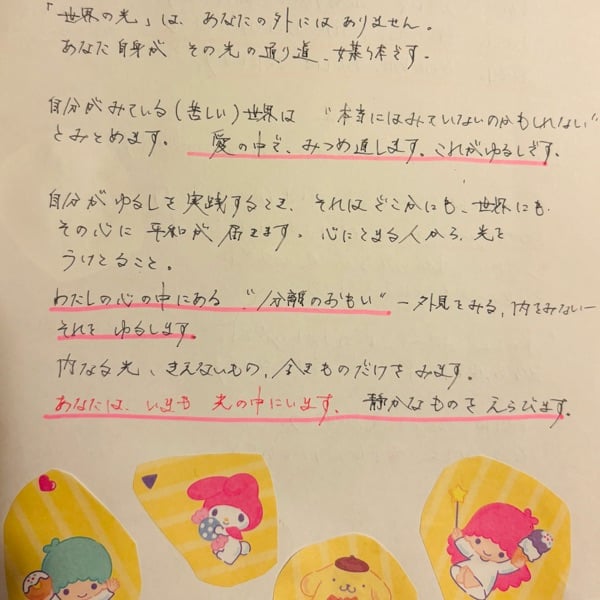 「世界の光」は、あなたの外にはありません。
あなた自身が その光の通り道、媒体です。
自分がみている(苦しい)世界は "本当にはみていないのかもしれない"
とみとめます。 愛の中で、みつめ直します。これがゆるしです。
自分がゆるしを実践するとき、それはどこかにも、世界にも
その心に平和が届きます。心にとまる人から、光を
うけとること。
わたしの心の中にある "分離のおもい" ー外見をみる、内をみないー
それを ゆるします。
内なる光、きえないもの、全きものだけを みます。
あなたは、いまも 光の中にいます。 静かなものを えらびます。